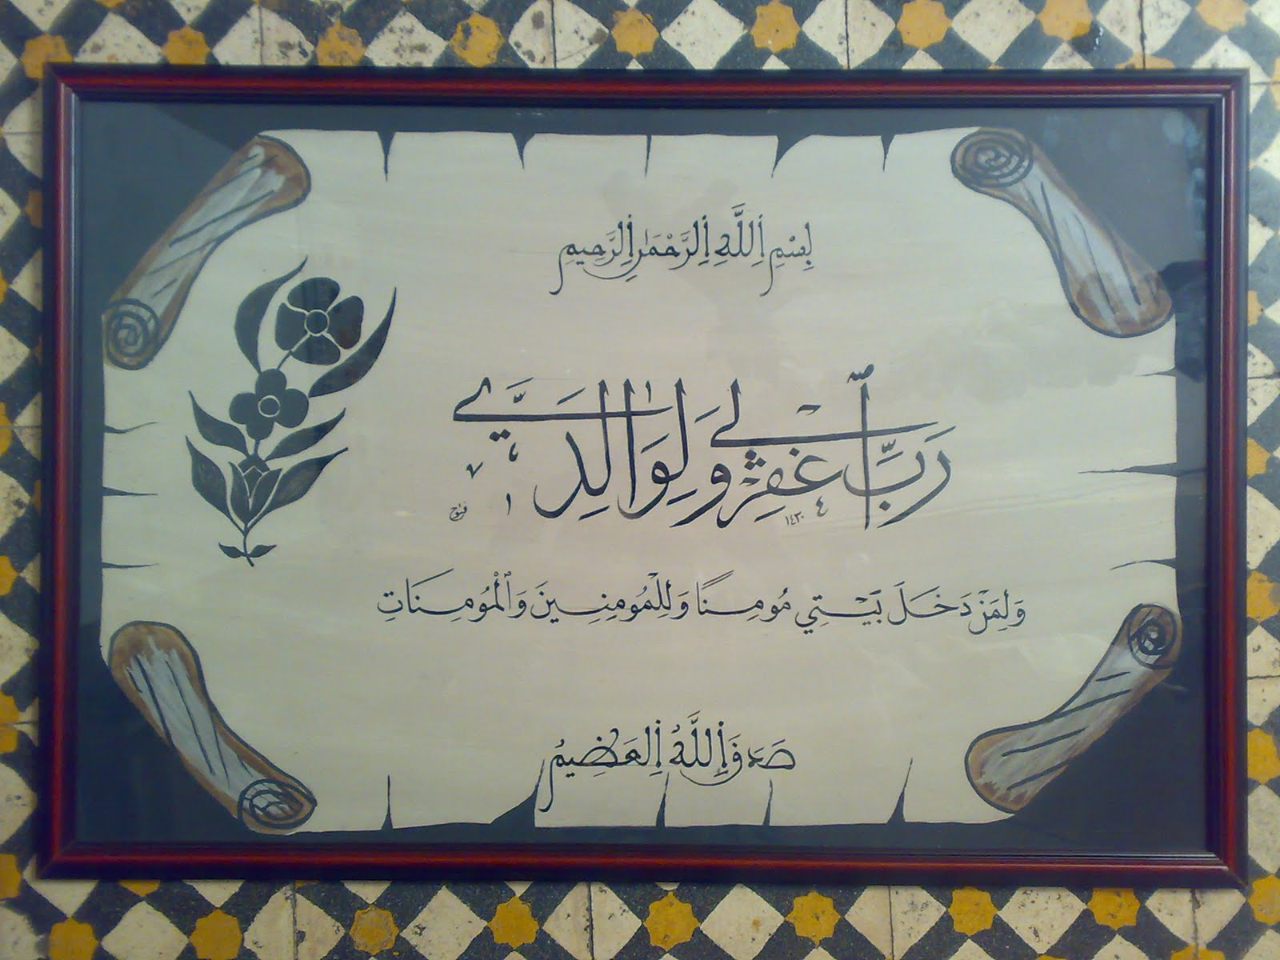 بِسْمِ اِللَّهِ اِلرَّحْمَٰنِ اِلرَّحِيمِ
رَبِّ اغْفِرْ لِي وَلِوَالِدَيَّ
١٤٣٠
وَلِمَنْ دَخَلَ بَيْتِي مُومِنًا وَلِلْمُومِنِينَ وَالْمُومِنَاتِ
صَدَقَ اَللَّهُ اَلعَظِيمُ